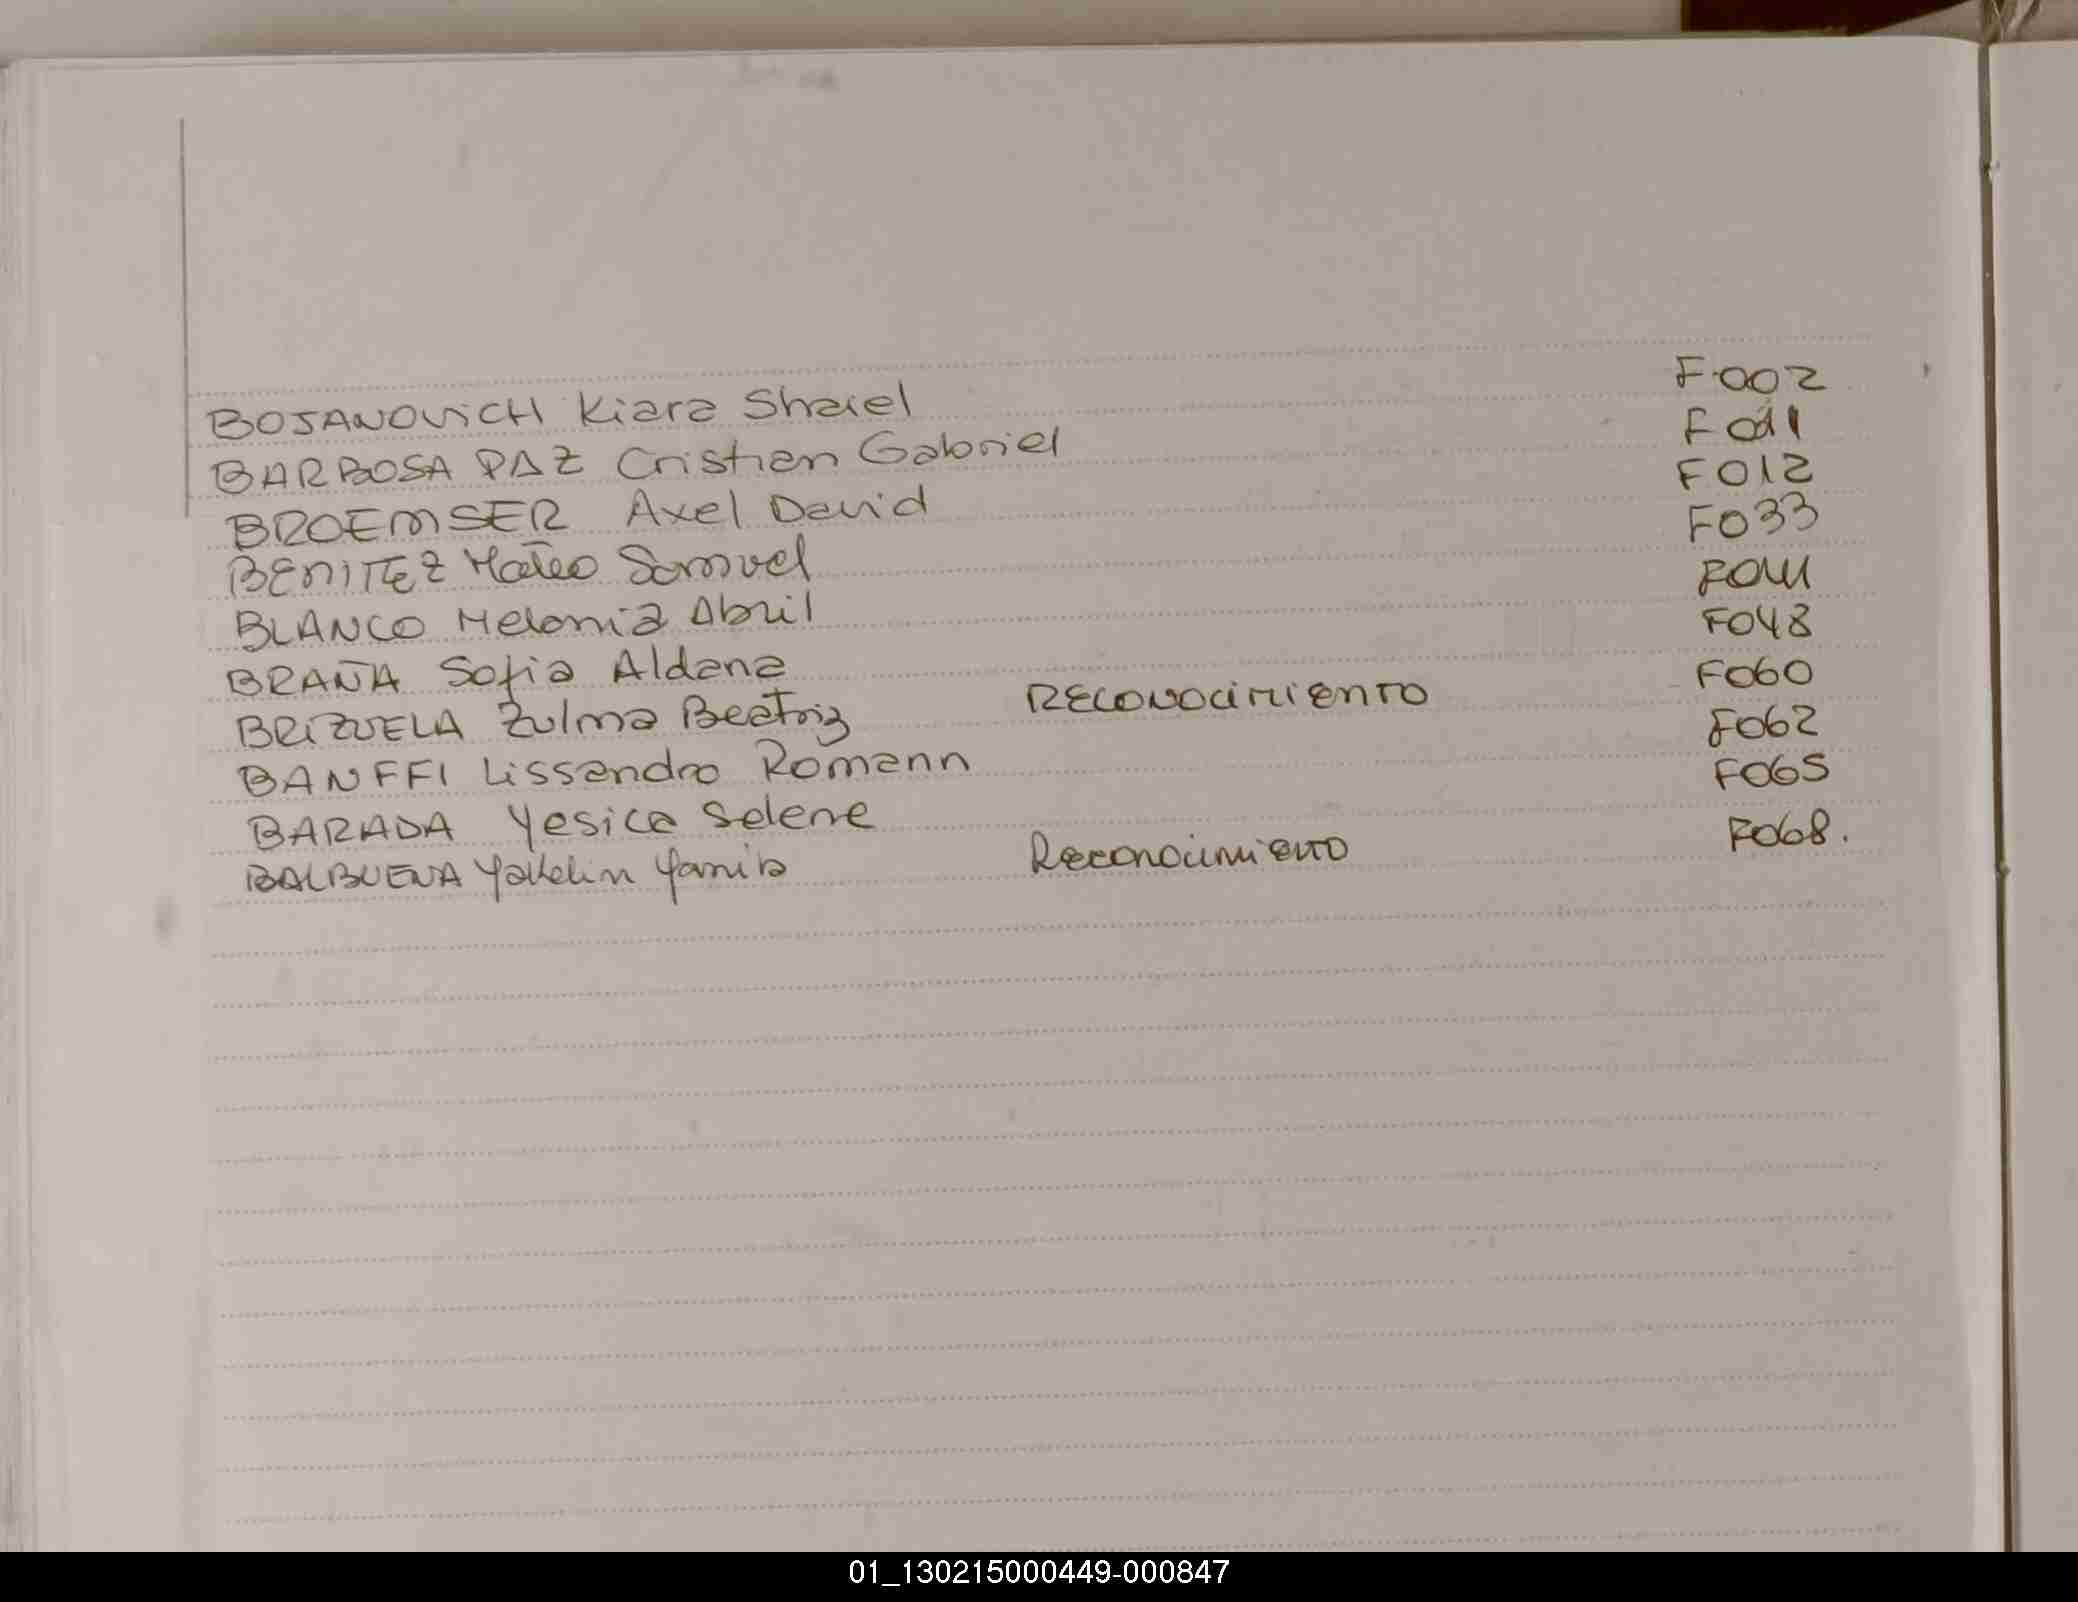 BOJANOVICH Kiara Shaiel F002
BARBOSA PAZ Cristian Gabriel F011
BROEMSER Axel David F012
BENITEZ Mateo Samuel F033
BLANCO Melania Abril F041
BRAÑA Sofia Aldana F048
BRIZUELA Zulma Beatriz RECONOCIMIENTO F060
BANFFI Lissandro Romann F062
BARADA Yesica Selene F065
BALBUENA Yakelin Yamila Reconocimiento F068.
01_130215000449-000847